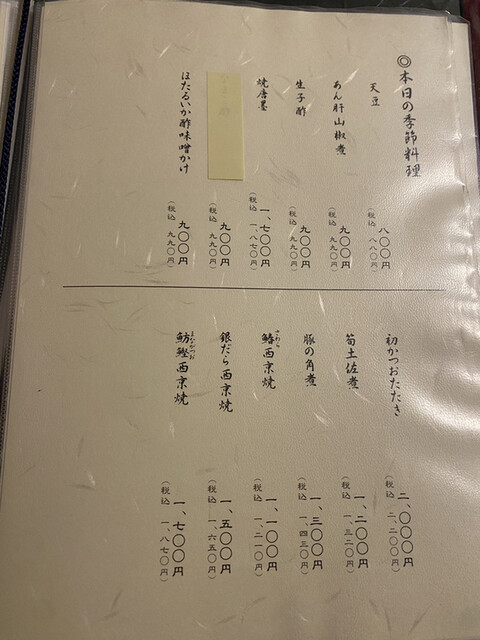 ◎本日の季節料理
天豆
八〇〇円
(税込 八八〇円)
あん肝山椒煮
九〇〇円
(税込 九九〇円)
生子酢
九〇〇円
(税込 九九〇円)
焼唐墨
一、七〇〇円
(税込 一、八七〇円)
九〇〇円
(税込 九九〇円)
ほたるいか酢味噌かけ
九〇〇円
(税込 九九〇円)
初かつおたたき
二、〇〇〇円
(税込 二、二〇〇円)
筍土佐煮
一、二〇〇円
(税込 一、三二〇円)
豚の角煮
一、三〇〇円
(税込 一、四三〇円)
さわら
鰆西京焼
一、一〇〇円
(税込 一、二一〇円)
銀だら西京焼
一、五〇〇円
(税込 一、六五〇円)
まながつお
魴鰹西京焼
一、七〇〇円
(税込 一、八七〇円)